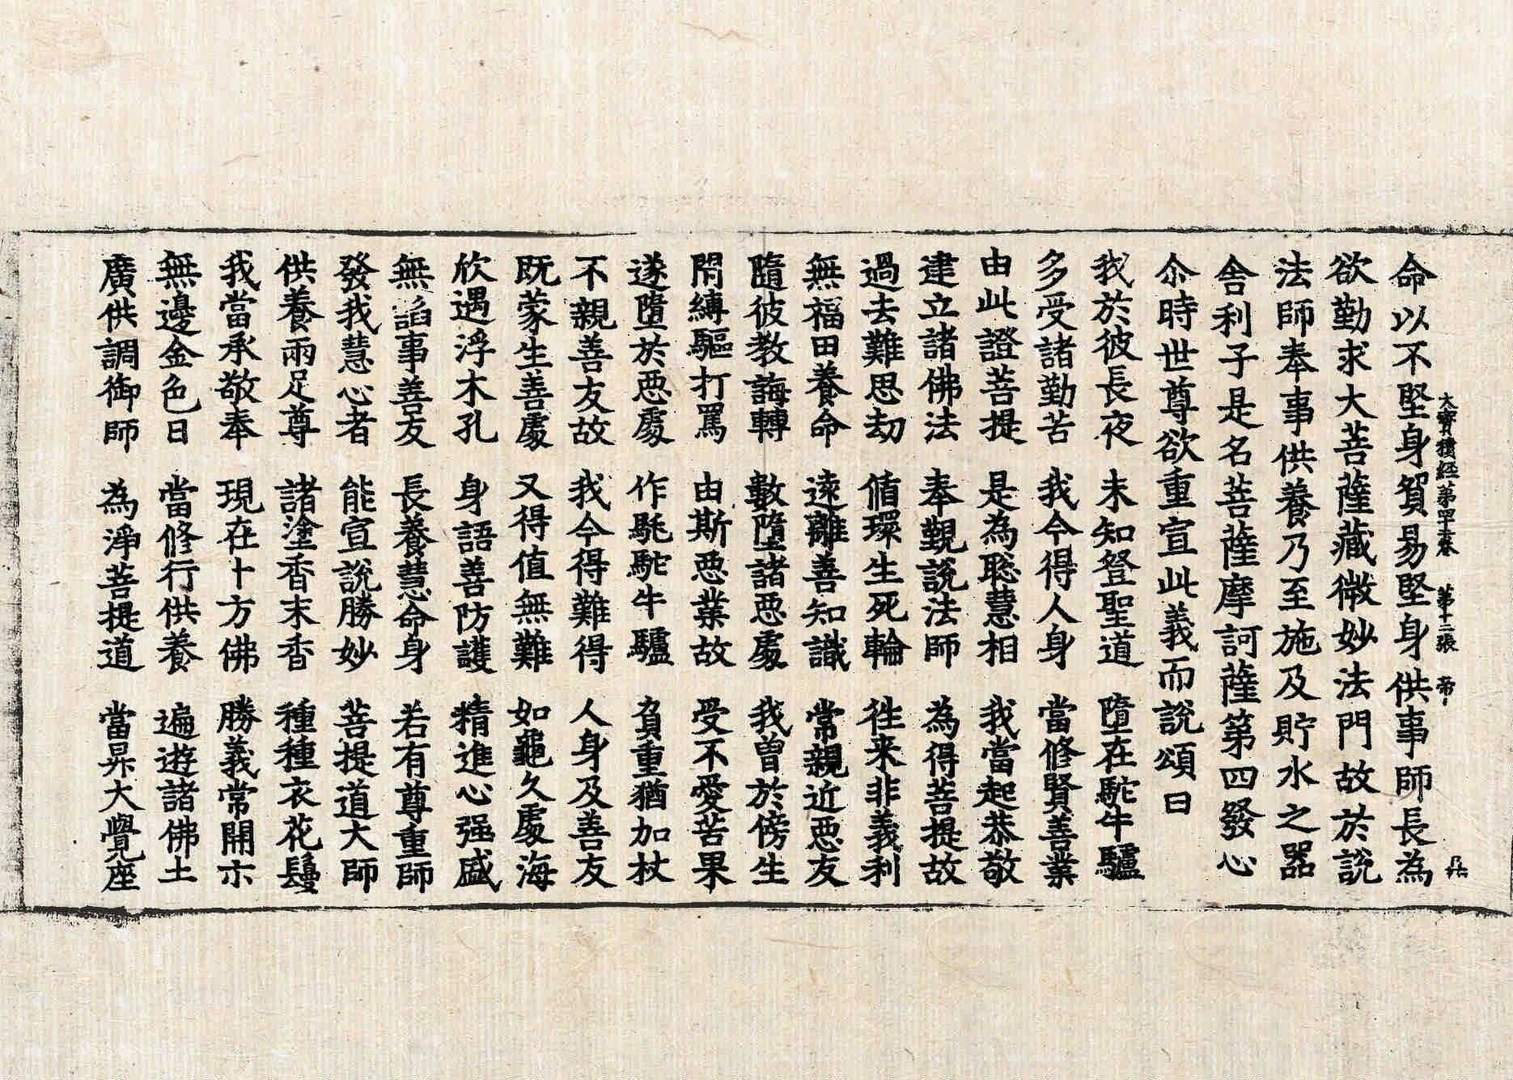 大寶積經第 卷 第十二張 帝
命以不堅身貿易堅身供事師長為
欲勤求大菩薩藏微妙法門故於說
法師奉事供養乃至施及貯水之器
舍利子是名菩薩摩訶薩第四發心
尒時世尊欲重宣此義而說頌曰
我於彼長夜 未知發聖道 墮在駝牛驢
多受諸勤苦 我今得人身 當修賢善業
由此證菩提 是為聡慧相 我當起恭敬
建立諸佛法 奉覲說法師 為得菩提故
過去難思劫 循環生死輪 往来非義利
無福田養命 遠離善知識 常親近惡友
隨彼教誨轉 數墮諸惡處 我曾於傍生
閇縛驅打罵 由斯惡業故 受不愛苦果
遂墮於惡處 作駞駝牛驢 負重猶加杖
不親善友故 我今得難得 人身及善友
既蒙生善處 又得值無難 如龜久處海
欣遇浮木孔 身語善防護 精進心强盛
無諂事善友 長養慧命身 若有尊重師
發我慧心者 能宣說勝妙 菩提道大師
供養兩足尊 諸塗香末香 種種衣花鬘
我當承敬奉 現在十方佛 勝義常開示
無邊金色日 當修行供養 遍遊諸佛土
廣供調御師 為淨菩提道 當昇大覺座